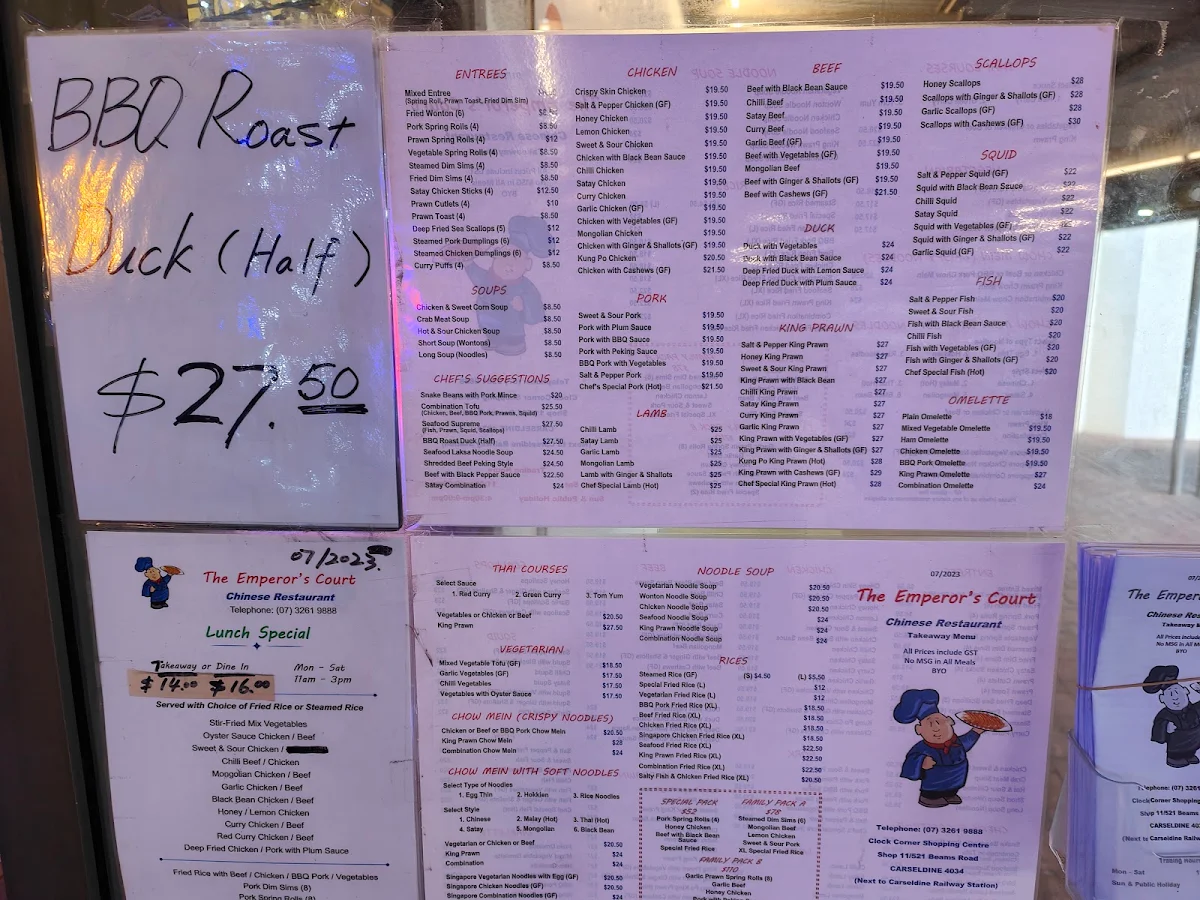 BBQ Roast
Duck (Half)
$27.50
ENTREES
Mixed Entree
(Spring Roll, Prawn Toast, Fried Dim Sim)
Fried Wonton (6)
Pork Spring Rolls (4) $8.50
Prawn Spring Rolls (4) $12
Vegetable Spring Rolls (4) $8.50
Steamed Dim Sims (4) $8.50
Fried Dim Sims (4) $8.50
Satay Chicken Sticks (4) $12.50
Prawn Cutlets (4) $10
Prawn Toast (4) $8.50
Deep Fried Sea Scallops (5) $12
Steamed Pork Dumplings (6) $12
Steamed Chicken Dumplings (6) $12
Curry Puffs (4) $8.50
SOUPS
Chicken & Sweet Corn Soup $8.50
Crab Meat Soup $8.50
Hot & Sour Chicken Soup $8.50
Short Soup (Wontons) $8.50
Long Soup (Noodles) $8.50
CHEF'S SUGGESTIONS
Snake Beans with Pork Mince $20
Combination Tofu $25.50
(Chicken, Beef, BBQ Pork, Prawns, Squid)
Seafood Supreme $27.50
(Fish, Prawn, Squid, Scallops)
BBQ Roast Duck (Half) $27.50
Seafood Laksa Noodle Soup $24.50
Shredded Beef Peking Style $24.50
Beef with Black Pepper Sauce $22.50
Satay Combination $24
CHICKEN
Crispy Skin Chicken $19.50
Salt & Pepper Chicken (GF) $19.50
Honey Chicken $19.50
Lemon Chicken $19.50
Sweet & Sour Chicken $19.50
Chicken with Black Bean Sauce $19.50
Chilli Chicken $19.50
Satay Chicken $19.50
Curry Chicken $19.50
Garlic Chicken (GF) $19.50
Chicken with Vegetables (GF) $19.50
Mongolian Chicken $19.50
Chicken with Ginger & Shallots (GF) $19.50
Kung Po Chicken (Hot) $20.50
Chicken with Cashews (GF) $21.50
PORK
Sweet & Sour Pork $19.50
Pork with Plum Sauce $19.50
Pork with BBQ Sauce $19.50
Pork with Peking Sauce $19.50
BBQ Pork with Vegetables $19.50
Salt & Pepper Pork $19.50
Chef's Special Pork (Hot) $21.50
LAMB
Chilli Lamb $25
Satay Lamb $25
Garlic Lamb $25
Mongolian Lamb $25
Lamb with Ginger & Shallots $25
Chef Special Lamb (Hot) $25
BEEF
Beef with Black Bean Sauce $19.50
Chilli Beef $19.50
Satay Beef $19.50
Curry Beef $19.50
Garlic Beef (GF) $19.50
Beef with Vegetables (GF) $19.50
Mongolian Beef $19.50
Beef with Ginger & Shallots (GF) $19.50
Beef with Cashews (GF) $21.50
DUCK
Duck with Vegetables $24
Duck with Black Bean Sauce $24
Deep Fried Duck with Lemon Sauce $24
Deep Fried Duck with Plum Sauce $24
KING PRAWN
Salt & Pepper King Prawn $27
Honey King Prawn $27
Sweet & Sour King Prawn $27
King Prawn with Black Bean $27
Chilli King Prawn $27
Satay King Prawn $27
Curry King Prawn $27
Garlic King Prawn $27
King Prawn with Vegetables (GF) $27
King Prawn with Ginger & Shallots (GF) $27
Kung Po King Prawn (Hot) $28
King Prawn with Cashews (GF) $29
Chef Special King Prawn (Hot) $28
SCALLOPS
Honey Scallops $28
Scallops with Ginger & Shallots (GF) $28
Garlic Scallops (GF) $28
Scallops with Cashews (GF) $30
SQUID
Salt & Pepper Squid (GF) $22
Squid with Black Bean Sauce $22
Chilli Squid $22
Satay Squid $22
Squid with Vegetables (GF) $22
Squid with Ginger & Shallots (GF) $22
Garlic Squid (GF) $22
FISH
Salt & Pepper Fish $20
Sweet & Sour Fish $20
Fish with Black Bean Sauce $20
Chilli Fish $20
Fish with Vegetables (GF) $20
Fish with Ginger & Shallots (GF) $20
Chef Special Fish (Hot) $20
OMELETTE
Plain Omelette $18
Mixed Vegetable Omelette $19.50
Ham Omelette $19.50
Chicken Omelette $19.50
BBQ Pork Omelette $19.50
King Prawn Omelette $27
Combination Omelette $24
07/2023
The Emperor's Court
Chinese Restaurant
Telephone: (07) 3261 9888
Lunch Special
Takeaway or Dine In Mon - Sat
$14.00 $16.00 11am - 3pm
Served with Choice of Fried Rice or Steamed Rice
Stir-Fried Mix Vegetables
Oyster Sauce Chicken / Beef
Sweet & Sour Chicken /
Chilli Beef / Chicken
Moogolian Chicken / Beef
Garlic Chicken / Beef
Black Bean Chicken / Beef
Honey / Lemon Chicken
Curry Chicken / Beef
Red Curry Chicken / Beef
Deep Fried Chicken / Pork with Plum Sauce
Fried Rice with Beef / Chicken / BBQ Pork / Vegetables
Pork Dim Sims (8)
Pork Spring Rolls (8)
THAI COURSES
Select Sauce
1. Red Curry 2. Green Curry 3. Tom Yum
Vegetables or Chicken or Beef $20.50
King Prawn $27.50
VEGETARIAN
Mixed Vegetable Tofu (GF) $18.50
Garlic Vegetables (GF) $17.50
Chilli Vegetables $17.50
Vegetables with Oyster Sauce $17.50
CHOW MEIN (CRISPY NOODLES)
Chicken or Beef or BBQ Pork Chow Mein $20.50
King Prawn Chow Mein $28
Combination Chow Mein $24
CHOW MEIN WITH SOFT NOODLES
Select Type of Noodles
1. Egg Thin 2. Hokkien 3. Rice Noodles
Select Style
1. Chinese 2. Malay (Hot) 3. Thai (Hot)
4. Satay 5. Mongolian 6. Black Bean
Vegetarian or Chicken or Beef $20.50
King Prawn $24
Combination $24
Singapore Vegetarian Noodles with Egg (GF) $20.50
Singapore Chicken Noodles (GF) $20.50
Singapore Combination Noodles (GF) $24
NOODLE SOUP
Vegetarian Noodle Soup $20.50
Wonton Noodle Soup $20.50
Chicken Noodle Soup $20.50
Seafood Noodle Soup $24
King Prawn Noodle Soup $24
Combination Noodle Soup $24
RICES
Steamed Rice (GF) (S) $4.50 (L) $5.50
Special Fried Rice (L) $12
Vegetarian Fried Rice (L) $12
BBQ Pork Fried Rice (XL) $18.50
Beef Fried Rice (XL) $18.50
Chicken Fried Rice (XL) $18.50
Singapore Chicken Fried Rice (XL) $18.50
Seafood Fried Rice (XL) $22.50
King Prawn Fried Rice (XL) $22.50
Combination Fried Rice (XL) $22.50
Salty Fish & Chicken Fried Rice (XL) $20.50
SPECIAL PACK
$52
Pork Spring Rolls (4)
Honey Chicken
Beef with Black Bean
Sauce
Special Fried Rice
FAMILY PACK A
$78
Steamed Dim Sims (6)
Mongolian Beef
Lemon Chicken
Sweet & Sour Pork
XL Special Fried Rice
FAMILY PACK B
$110
Garlic Prawn Spring Rolls (8)
Garlic Beef
Honey Chicken
07/2023
The Emperor's Court
Chinese Restaurant
Takeaway Menu
All Prices include GST
No MSG in All Meals
BYO
Telephone: (07) 3261 9888
Clock Corner Shopping Centre
Shop 11/521 Beams Road
CARSELDINE 4034
(Next to Carseldine Railway Station)
The Emper
Chinese Resta
Takeaway M
All Prices include
No MSG in All
BYO
Telephone: (07) 326
Clock Corner Shopping
Shop 11/521 Beams
CARSELDINE 403
(Next to Carseldine Rail
Trading Hours
Mon - Sat
Sun & Public Holiday